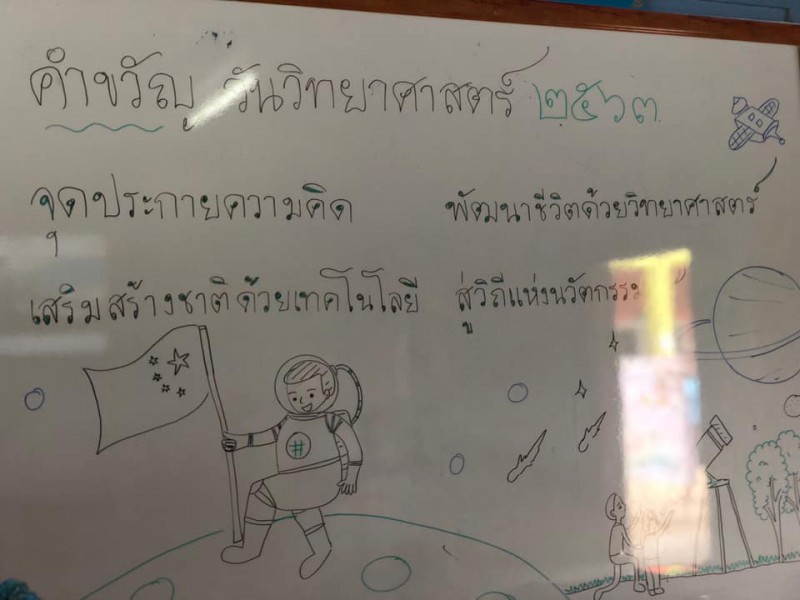 คำขวัญ วันวิทยาศาสตร์ ๒๕๖๓
จุดประกายความคิด พัฒนาชีวิตด้วยวิทยาศาสตร์
เสริมสร้างชาติด้วยเทคโนโลยี สู่วิถีแห่งนวัตกรรม
#